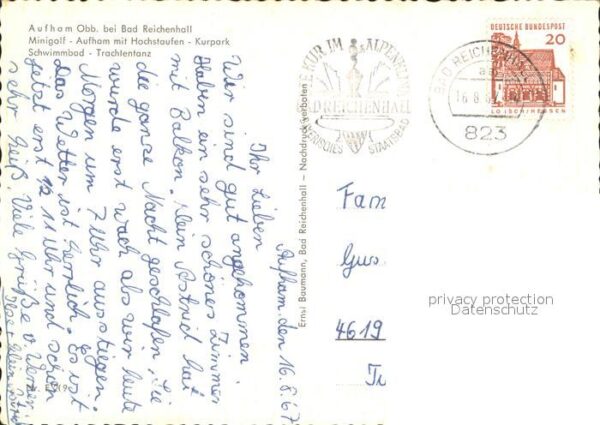 Aufham Obb. bei Bad Reichenhall
Minigolf - Aufham mit Hochstaufen - Kurpark
Schwimmbad - Trachtentanz
Aufham den 16.8.67
Ihr Lieben
Wir sind gut angekommen.
Haben ein sehr schönes Zimmer
mit Balkon. Klein Astrid hat
die ganze Nacht geschlafen. Sie
wurde erst wach als wir heute
Morgen um 7 Uhr ausstiegen.
Das Wetter ist herrlich. Es ist
jetzt erst 11 Uhr und schon
sehr heiß. Viele Grüße
Ernst Baumann, Bad Reichenhall - Nachdruck verboten
KUR IM ALPEN
BAD REICHENHALL
STAATSBAD
DEUTSCHE BUNDESPOST
20
LORSCH/HESSEN
BAD REICHENHALL
16.8.67
823
Fam
Gus
4619
privacy protection
Datenschutz